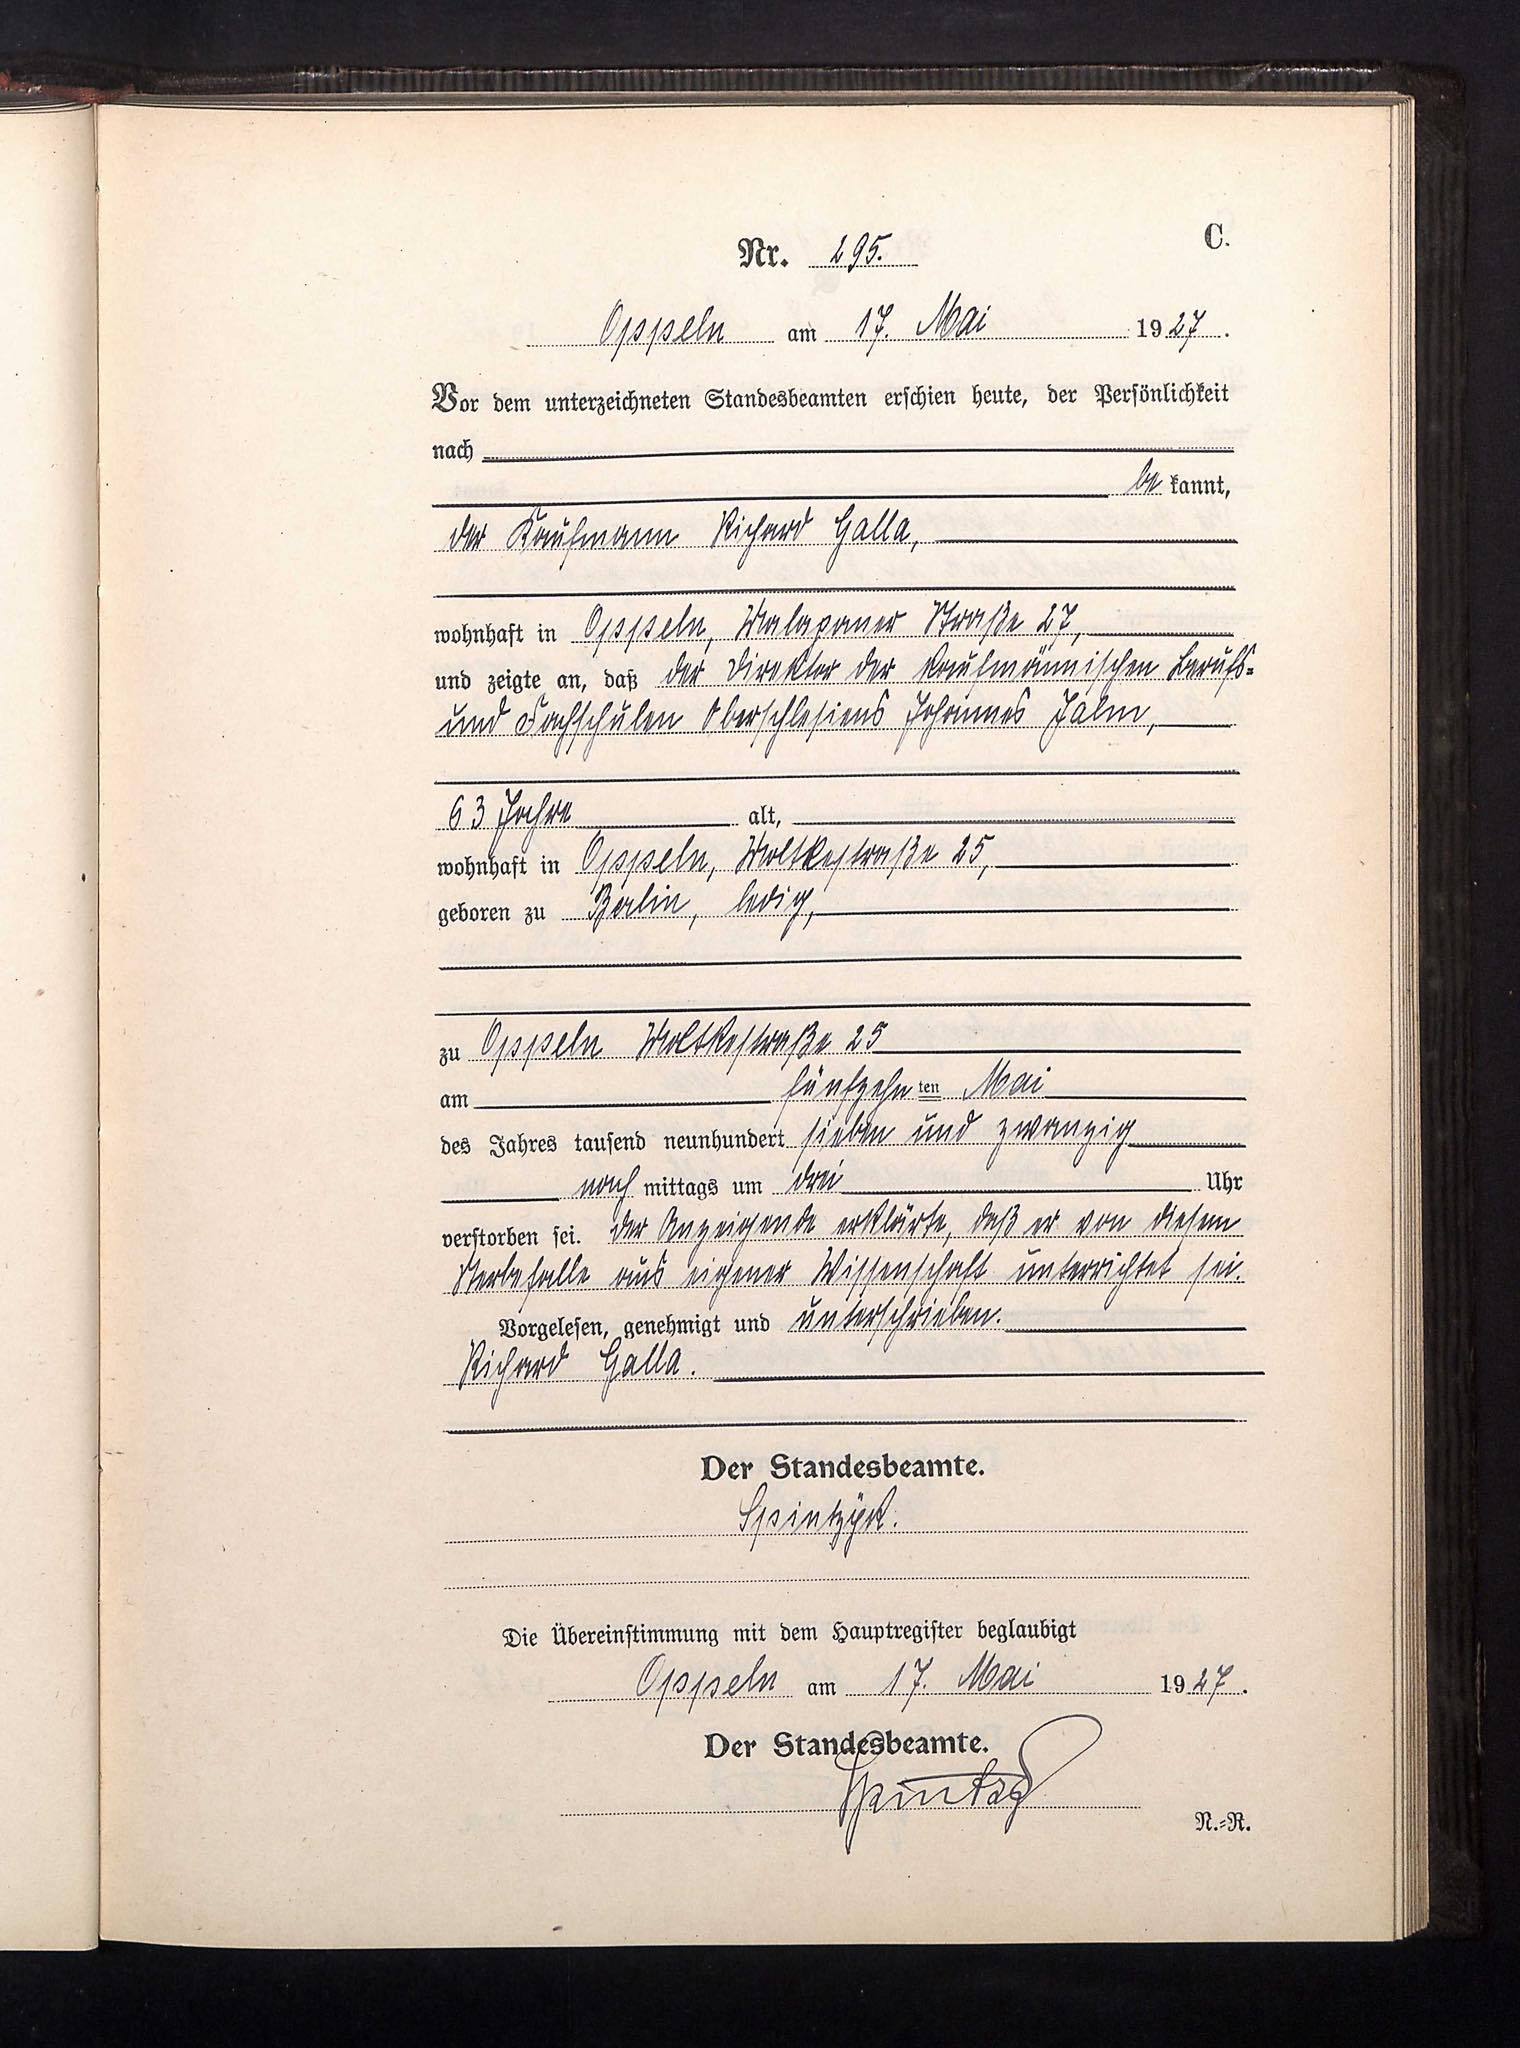 C.
Nr. 295.
Oppeln am 17. Mai 1927.
Vor dem unterzeichneten Standesbeamten erschien heute, der Persönlichkeit
nach
be kannt,
der Kaufmann Richard Galla,
wohnhaft in Oppeln, Malapaner Straße 27,
und zeigte an, daß der Direktor der kaufmännischen Berufs-
und Fachschulen Oberschlesiens Johannes Jalm,
63 Jahre alt,
wohnhaft in Oppeln, Moltkestraße 25,
geboren zu Berlin, ledig,
zu Oppeln Moltkestraße 25
am fünfzehn ten Mai
des Jahres tausend neunhundert sieben und zwanzig
nach mittags um drei Uhr
verstorben sei. Der Anzeigende erklärte, daß er von diesem
Sterbefalle aus eigener Wissenschaft unterrichtet sei.
Vorgelesen, genehmigt und unterschrieben.
Richard Galla.
Der Standesbeamte.
Spintzyk.
Die Übereinstimmung mit dem Hauptregister beglaubigt
Oppeln am 17. Mai 1927.
Der Standesbeamte.
N.-R.